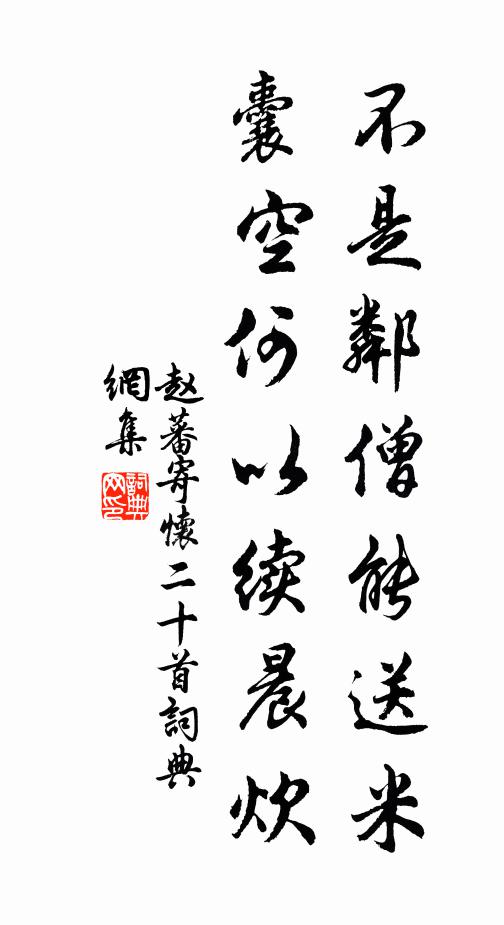 不是鄰僧能送米
囊空何以续晨炊
赵蕃寄懷二十首詞典
網集
詞典
网印